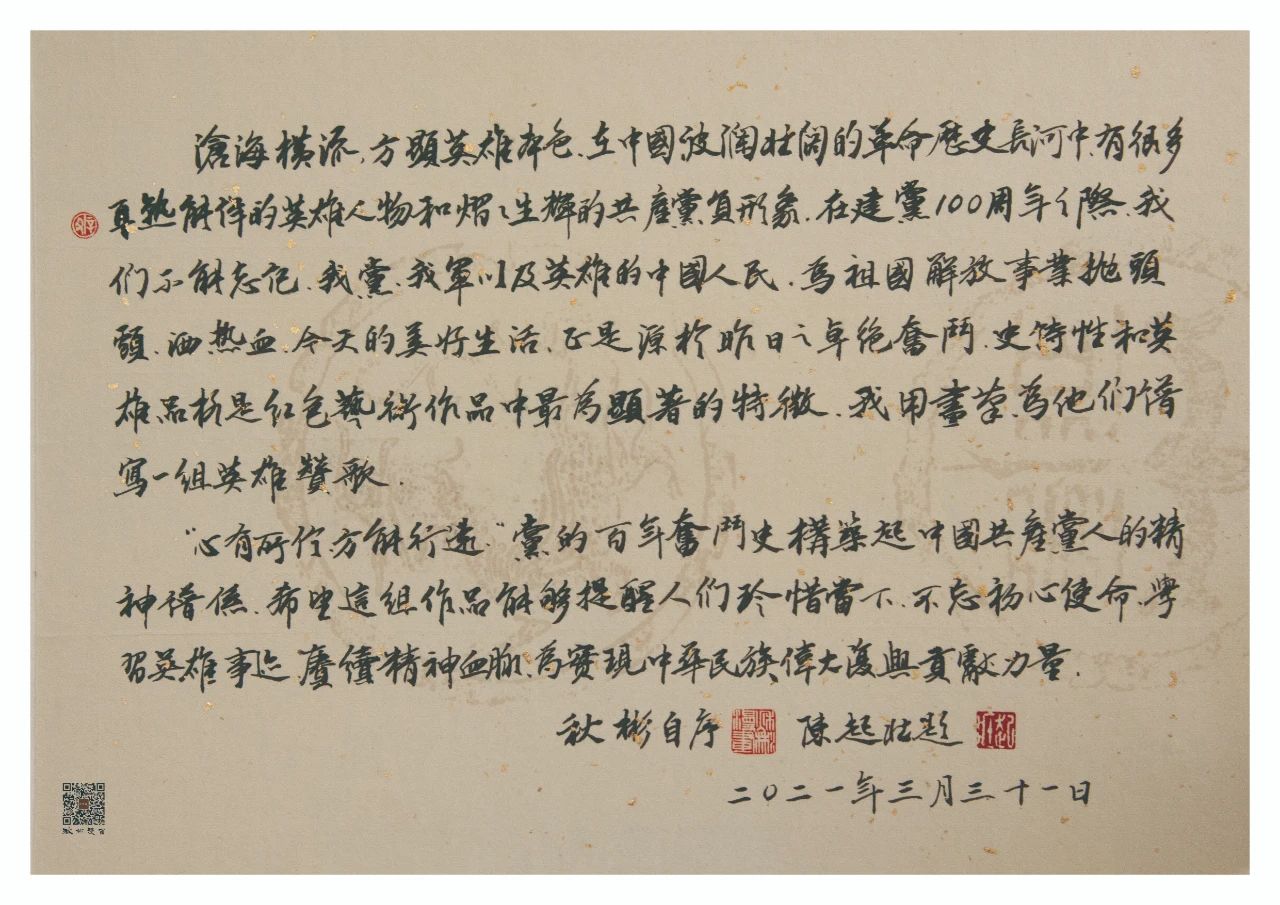 滄海横流,方顯英雄本色.在中國波瀾壯闊的革命歷史長河中,有很多
真熱解偉的英雄人物和熠熠生輝的共產黨員形象.在建黨100周年之際.我
們不能忘記.我黨.我軍以及英雄的中國人民.為祖國解放事業抛頭
顱.洒热血.今天的美好生活.正是源於昨日之卓絕奮鬥.史詩性和英
雄品格是红色藝術作品中最為顯著的特徵.我用畫筆為他們譜
寫一组英雄贊歌.
"心有所信,方能行遠."黨的百年奮鬥史構築起中國共產黨人的精
神譜係.希望這組作品能够提醒人们珍惜當下.不忘初心使命.學
習英雄事迹.賡續精神血脈.為實現中華民族偉大復興貢獻力量.
秋彬自序 陳起壯題
二〇二一年三月三十一日